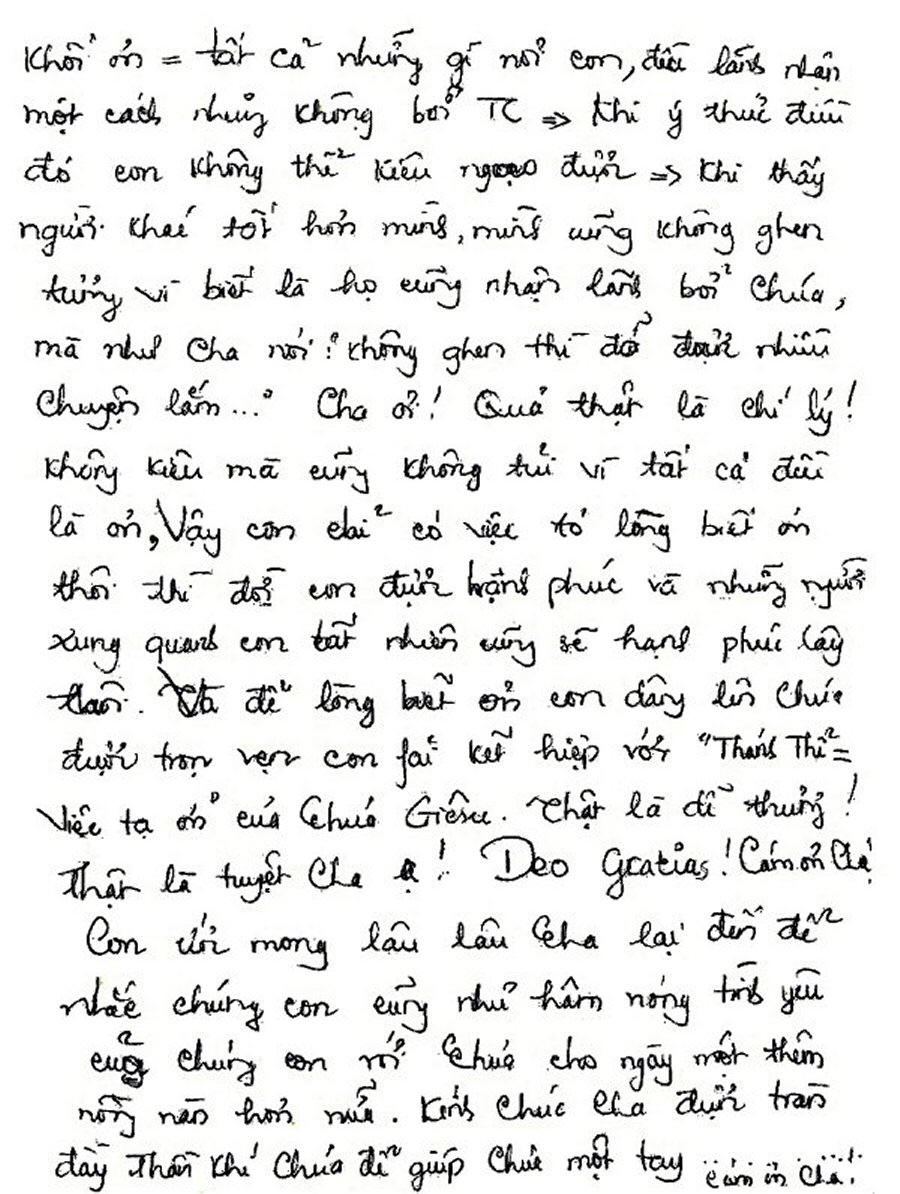 Khối ơn = tất cả những gì nơi con, đều lãnh nhận
một cách nhưng không bởi TC => Khi ý thức điều
đó con không thể kiêu ngạo được => Khi thấy
người khác tốt hơn mình, mình cũng không ghen
tương vì biết là họ cũng nhận lãnh bởi Chúa,
mà như Cha nói: không ghen thì đỡ được nhiều
Chuyện lắm..." Cha ơi! Quả thật là chí lý!
không kiêu mà cũng không tủi vì tất cả đều
là ơn, Vậy con chỉ có việc tỏ lòng biết ơn
thôi thì đời con được hạnh phúc và những người
xung quanh con tất nhiên cũng sẽ hạnh phúc lây
thôi. Và để lòng biết ơn con dâng lên Chúa
được trọn vẹn con fải kết hiệp với "Thánh Thể =
Việc tạ ơn của Chúa Giêsu. Thật là dễ thương!
Thật là tuyệt Cha ạ! Deo Gratias! Cám ơn Cha
Con ước mong lâu lâu Cha lại đến để
nhắc chúng con cũng như hâm nóng tình yêu
của chúng con với Chúa cho ngày một thêm
nồng nàn hơn nữa. Kính Chúc Cha được tràn
đầy Thần Khí Chúa để giúp Chúa một tay ........ cám ơn Cha!